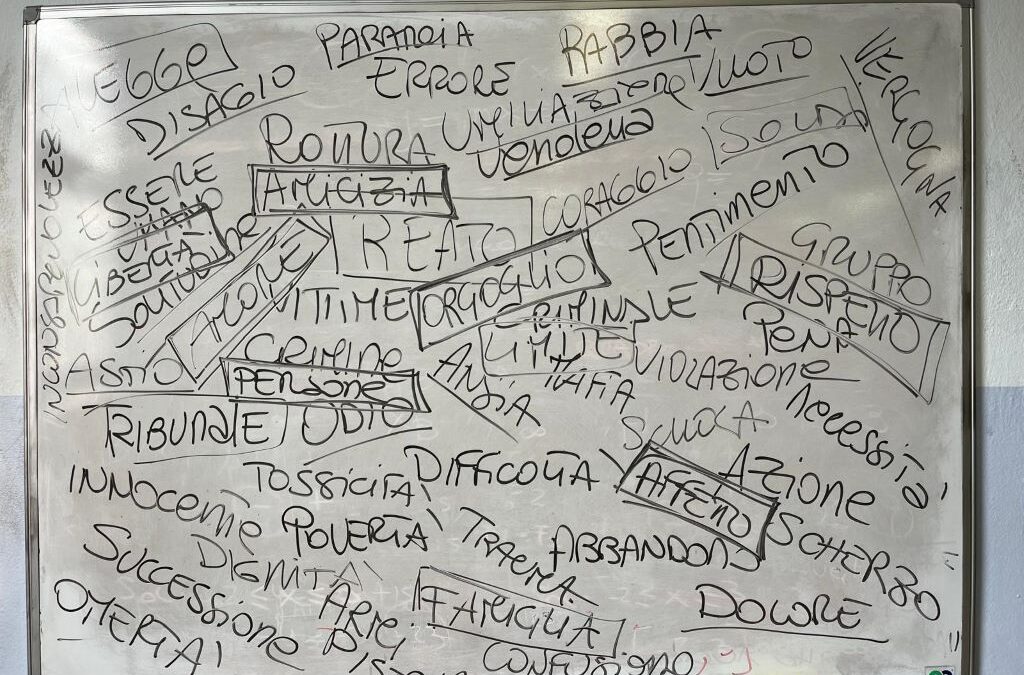 LEGGE
PARANOIA
RABBIA
VERGOGNA
DISAGIO
ERRORE
VUOTO
UMILIAZIONE
ROTTURA
vendetta
SOLDI
INCONSAPEVOLEZZA
ESSERE
UMANO
AMICIZIA
CORAGGIO
PENTIMENTO
LIBERTÀ
REATO
GRUPPO
SOLITUDINE
AMORE
ORGOGLIO
RISPETTO
VITTIME
CRIMINALE
PENA
ASTIO
CRIMINE
LIMITE
VIOLAZIONE
PERSONE
ANSIA
MAFIA
Necessità
TRIBUNALE
ODIO
SCUOLA
TOSSICITÀ
DIFFICOLTÀ
AFFETTO
AZIONE
INNOCENTE
POVERTÀ
TRAUMA
ABBANDONO
SCHERZO
DIGNITÀ
SUCCESSIONE
ARMI
FAMIGLIA
DOLORE
OMERTÀ
CONFUSIONE